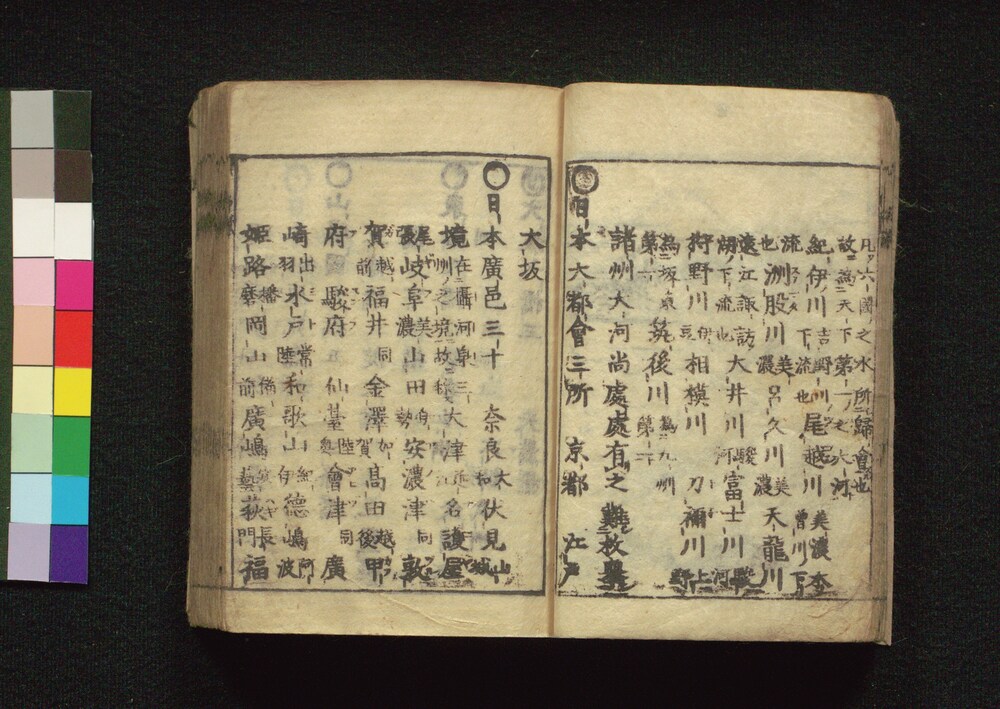 凡六國之水所歸會也
故爲天下第一之大河
紀伊川 吉野川下流也 尾越川 美濃木曾川下
流也 洲股川 美濃 呂久川 美濃 天龍川
遠江諏訪湖下流也 大井川 駿河 富士川 駿河
狩野川 伊豆 相模川 刀禰川 上野
爲坂東第一 筑後川 爲九州第一
諸州大河尚處處有之難枚擧
日本大都會三所 京都 江戸
大坂
日本廣邑三十 奈良 大和 伏見 山城
境 在攝河泉三州之境故稱 大津 近江 名護屋
尾張 岐阜 美濃 山田 伯勢 安濃津 同 敦
賀 越前 福井 同 金澤 加賀 高田 越後 甲
府 駿府 仙臺 陸奥 會津 同 廣
崎 出羽 水戸 常陸 和歌山 紀伊 德嶋 阿波
姫路 播磨 岡山 備前 廣嶋 安藝 萩 長門 福